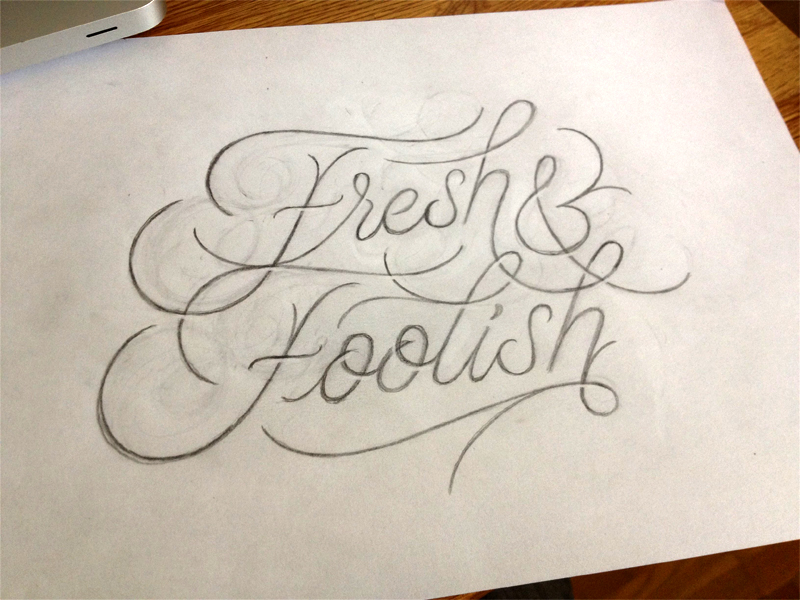 Fresh &
Foolish